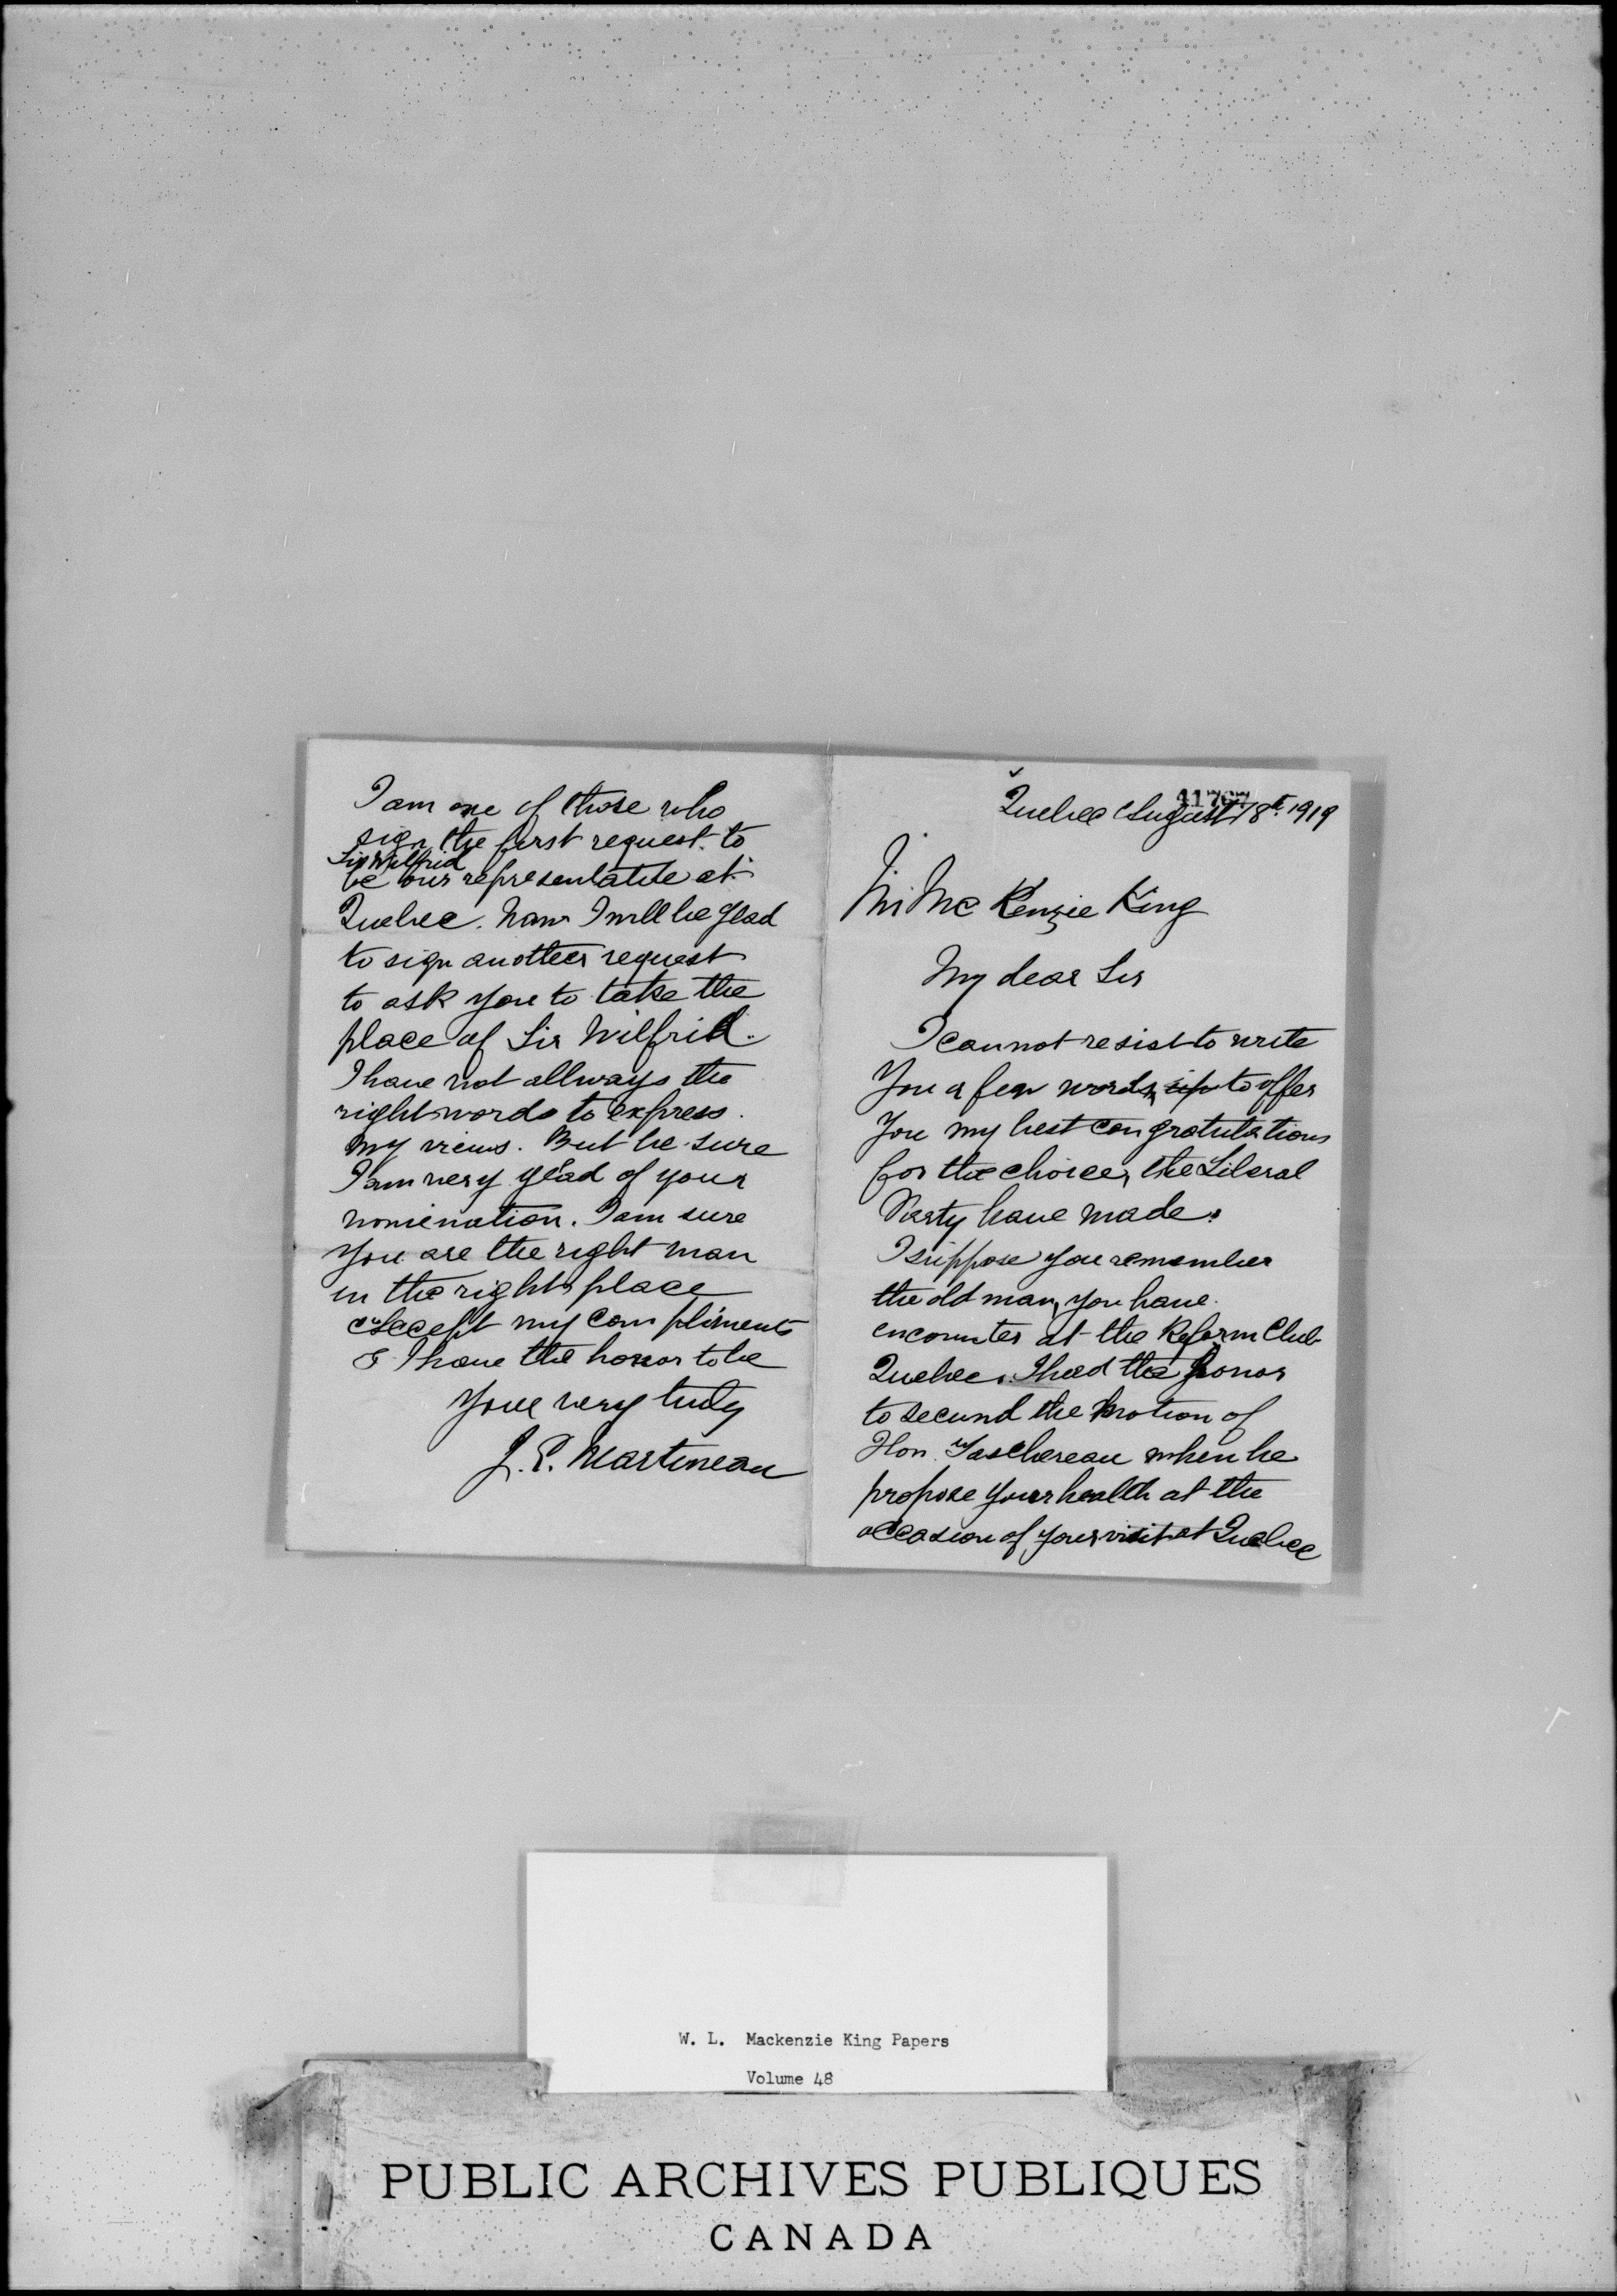 Quebec August 18t 1919
Mr Mc Kenzie King
My dear Sir
I cannot resist to write
You a few words to offer
You my best congratulations
for the choice, the Liberal
Party have made.
I suppose you remember
the old man, you have
encounter at the Reform Club
Quebec. I had the honor
to secund the Motion of
Hon. Taschereau when he
propose your health at the
occasion of your visit at Quebec
I am one of those who
sign the first request to
Sir Wilfrid
be our representative at
Quebec. Now I will be glad
to sign another request
to ask you to take the
place of Sir Wilfrid.
I have not allways the
right words to express
my views. But be sure
I am very glad of your
nomination. I am sure
You are the right man
in the right place
Accept my compliments
& I have the honor to be
Your very truly
J. E. Martineau
W. L. Mackenzie King Papers
Volume 48
PUBLIC ARCHIVES PUBLIQUES
CANADA